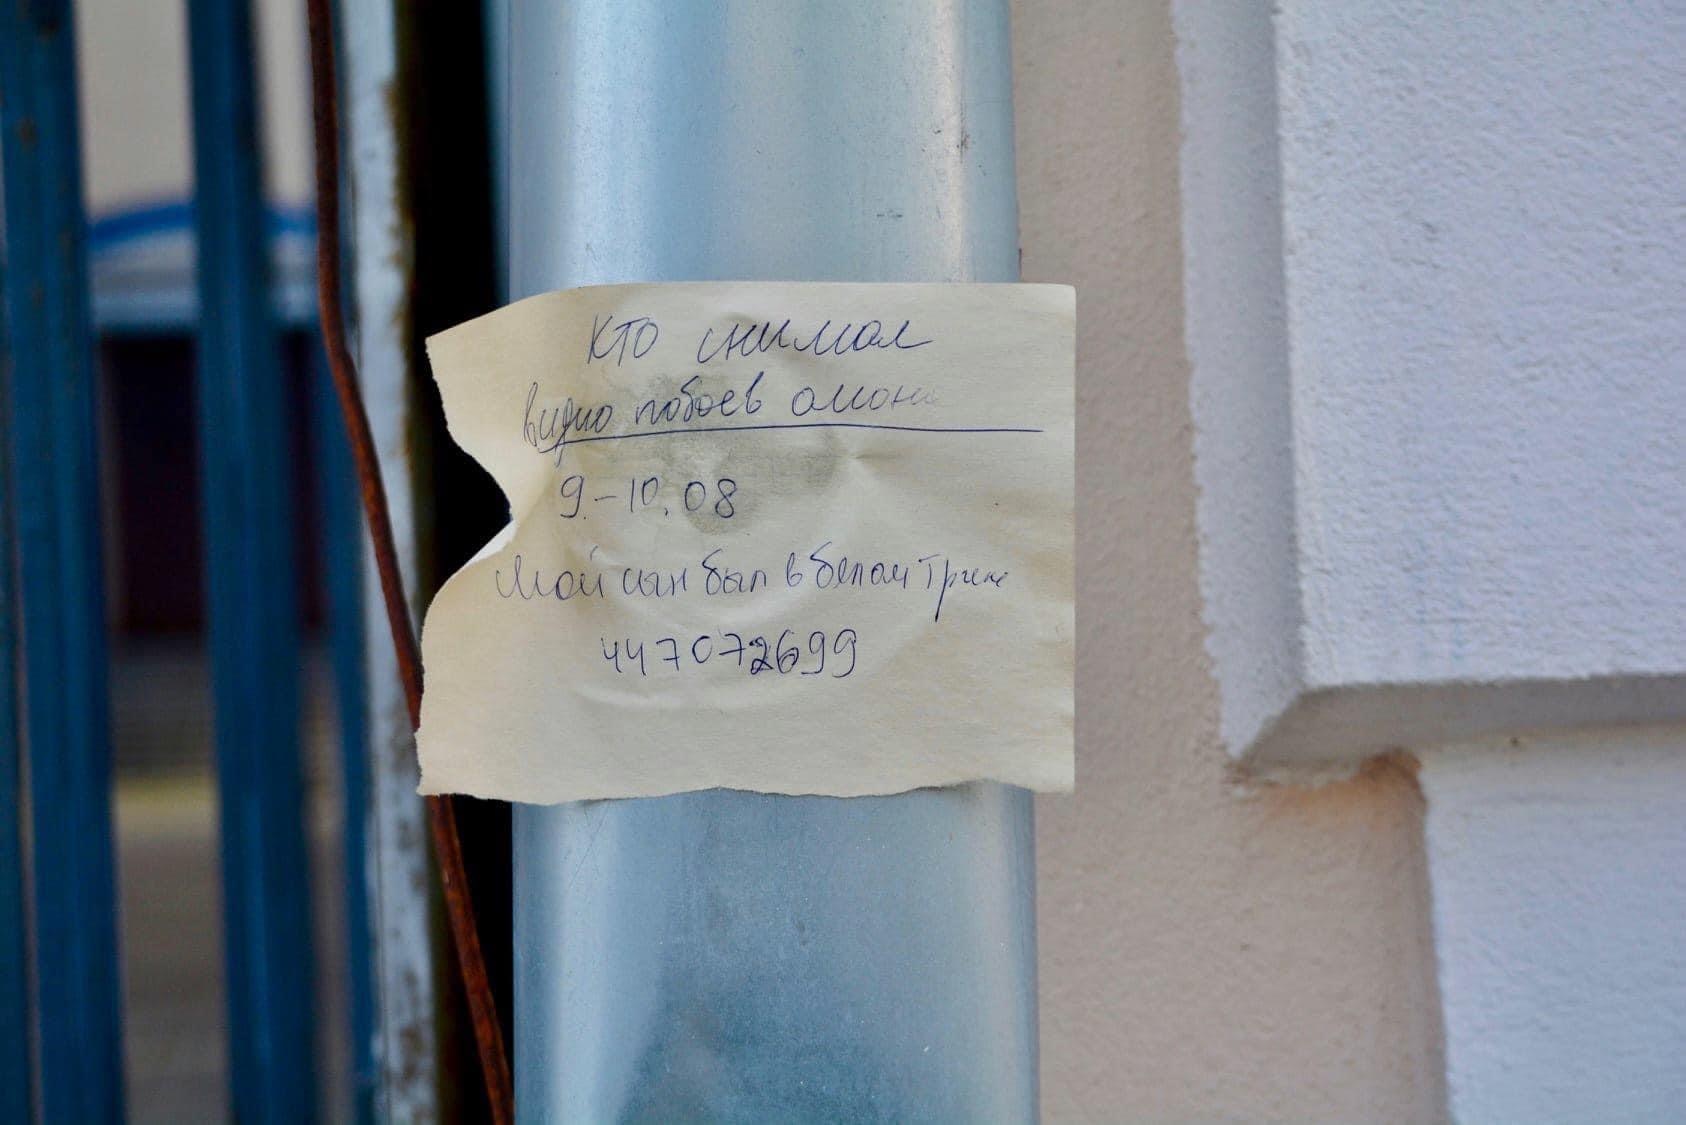 Кто снимал
видио побоев омона
9.-10.08
Мой сын был в белой трике
447072699